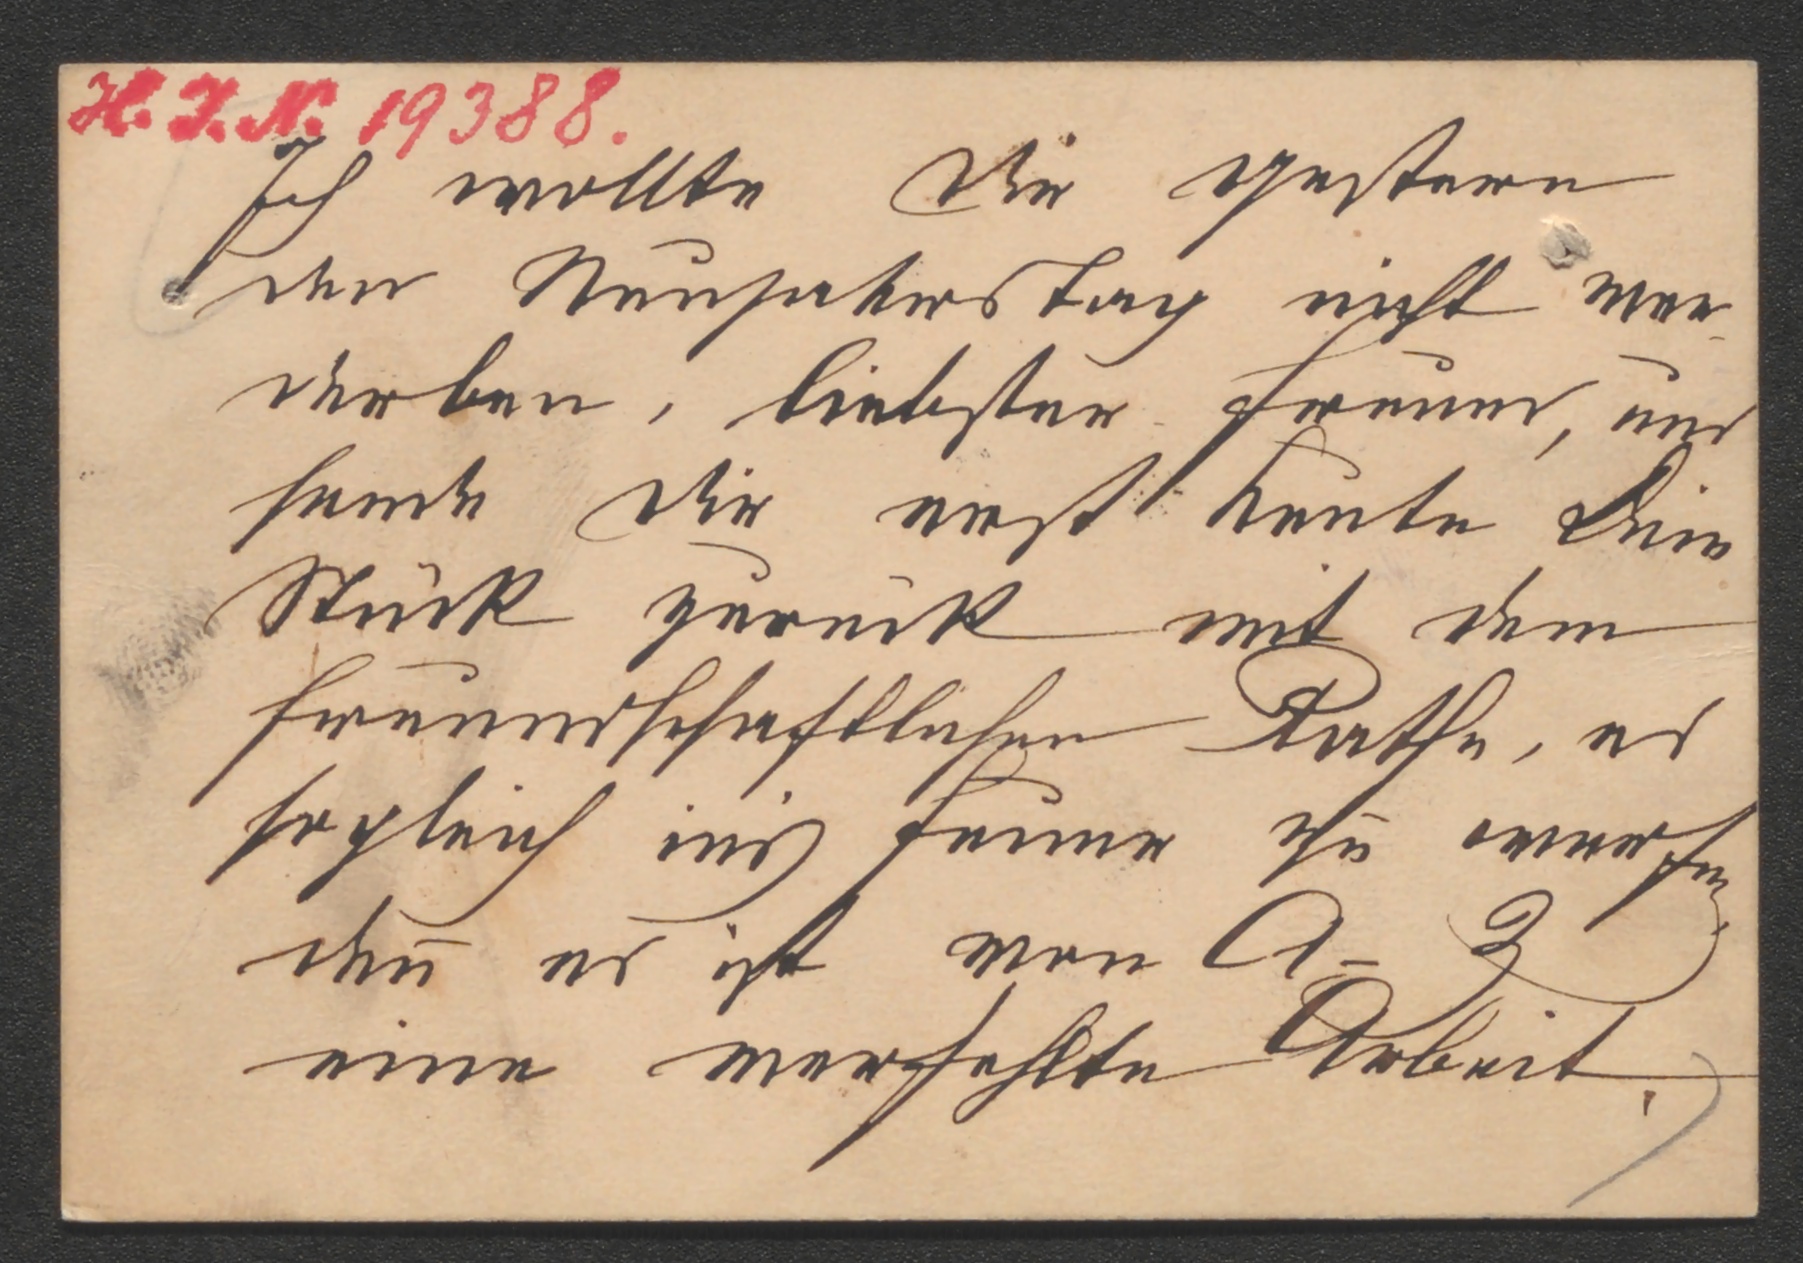 H. I. N. 19388.
Ich wollte Dir gestern
den Neujahrstag nicht ver-
derben, liebster Freund, und
sende Dir erst heute Dein
Stück zurück mit dem
freundschaftlichen Rathe, es
sogleich ins Feuer zu werfen,
den̄ es ist von A–Z
eine verfehlte Arbeit.